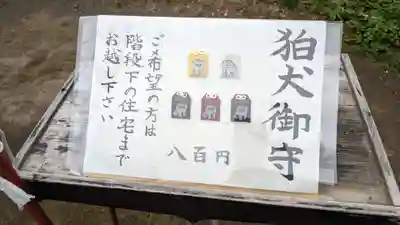 狛犬御守
ご希望の方は
階段下の住宅まで
お越し下さい
八百円